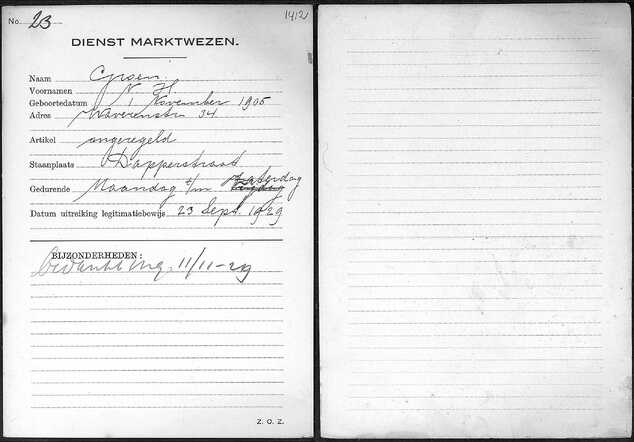 No. 23
1412
DIENST MARKTWEZEN.
Naam Groen.
Voornamen N. H
Geboortedatum 1 November 1905
Adres Waverenstr. 34
Artikel ongeregeld
Staanplaats Dapperstraat
Gedurende Maandag t/m zaterdag
Datum uitreiking legitimatiebewijs 23 Sept. 1929
BIJZONDERHEDEN:
11/11-29
Z. O. Z.